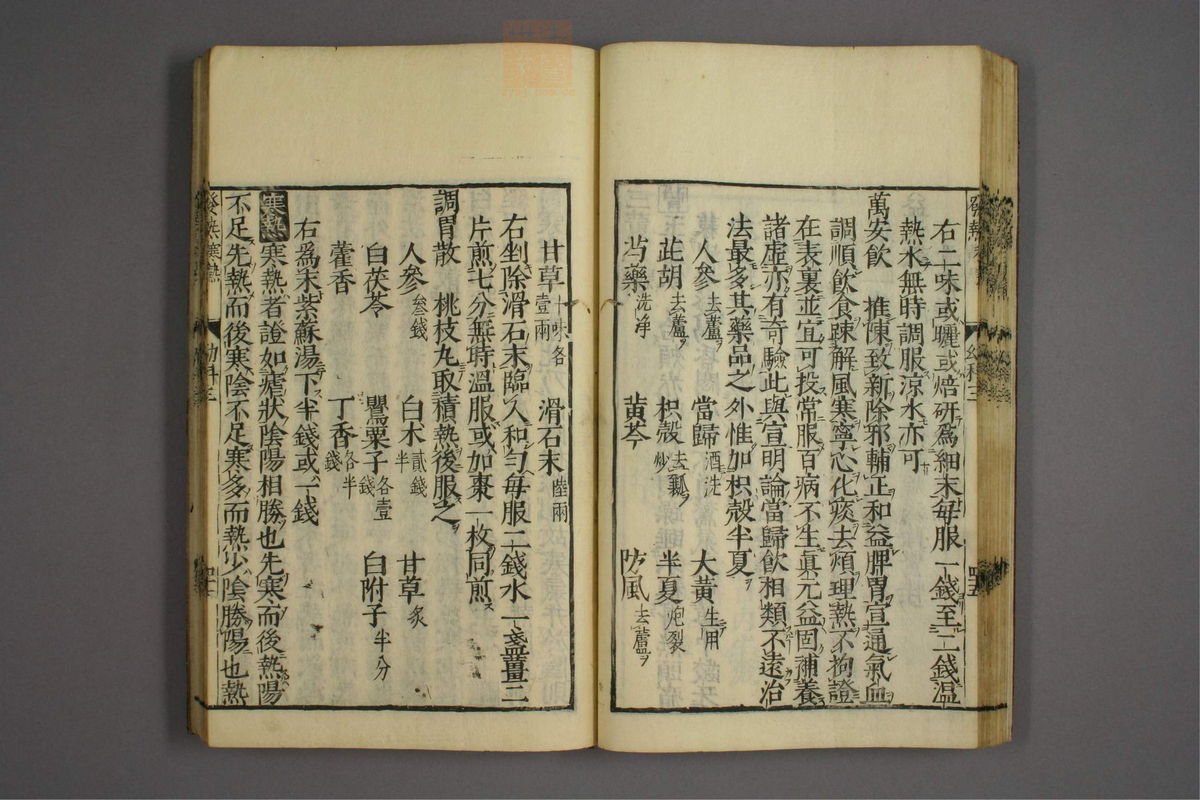 右二味或曬或焙研爲細末每服一錢至二錢温
熱水無時調服涼水亦可
萬安飲 推陳致新除邪輔正和益脾胃宣通氣血
調順飲食踈解風寒寧心化痰去煩理熱不拘證
在表裏並宜可投常服百病不生眞元益固補養
諸虛亦有奇驗此與宣明論當歸飲相類不遠治
法最多其藥品之外惟加枳殼半夏
人參去蘆 當歸酒洗 大黃生用
茈胡去蘆 枳殼去瓤炒 半夏炮裂
芍藥洗净 黃芩 防風去蘆
甘草十味各壹兩 滑石末陸兩
右剉除滑石末臨入和勻每服二錢水一盞薑二
片煎七分無時温服或如棗一枚同煎
調胃散 桃枝丸取積熱後服之
人參叄錢 白术貳錢半 甘草炙
白茯苓 鸎粟子各壹錢 白附子半分
藿香 丁香各半錢
右爲末紫蘇湯下半錢或一錢
寒熱 寒熱者證如瘧狀陰陽相勝也先寒而後熱陽
不足先熱而後寒陰不足寒多而熱少陰勝陽也熱
發熱寒熱 幼科三